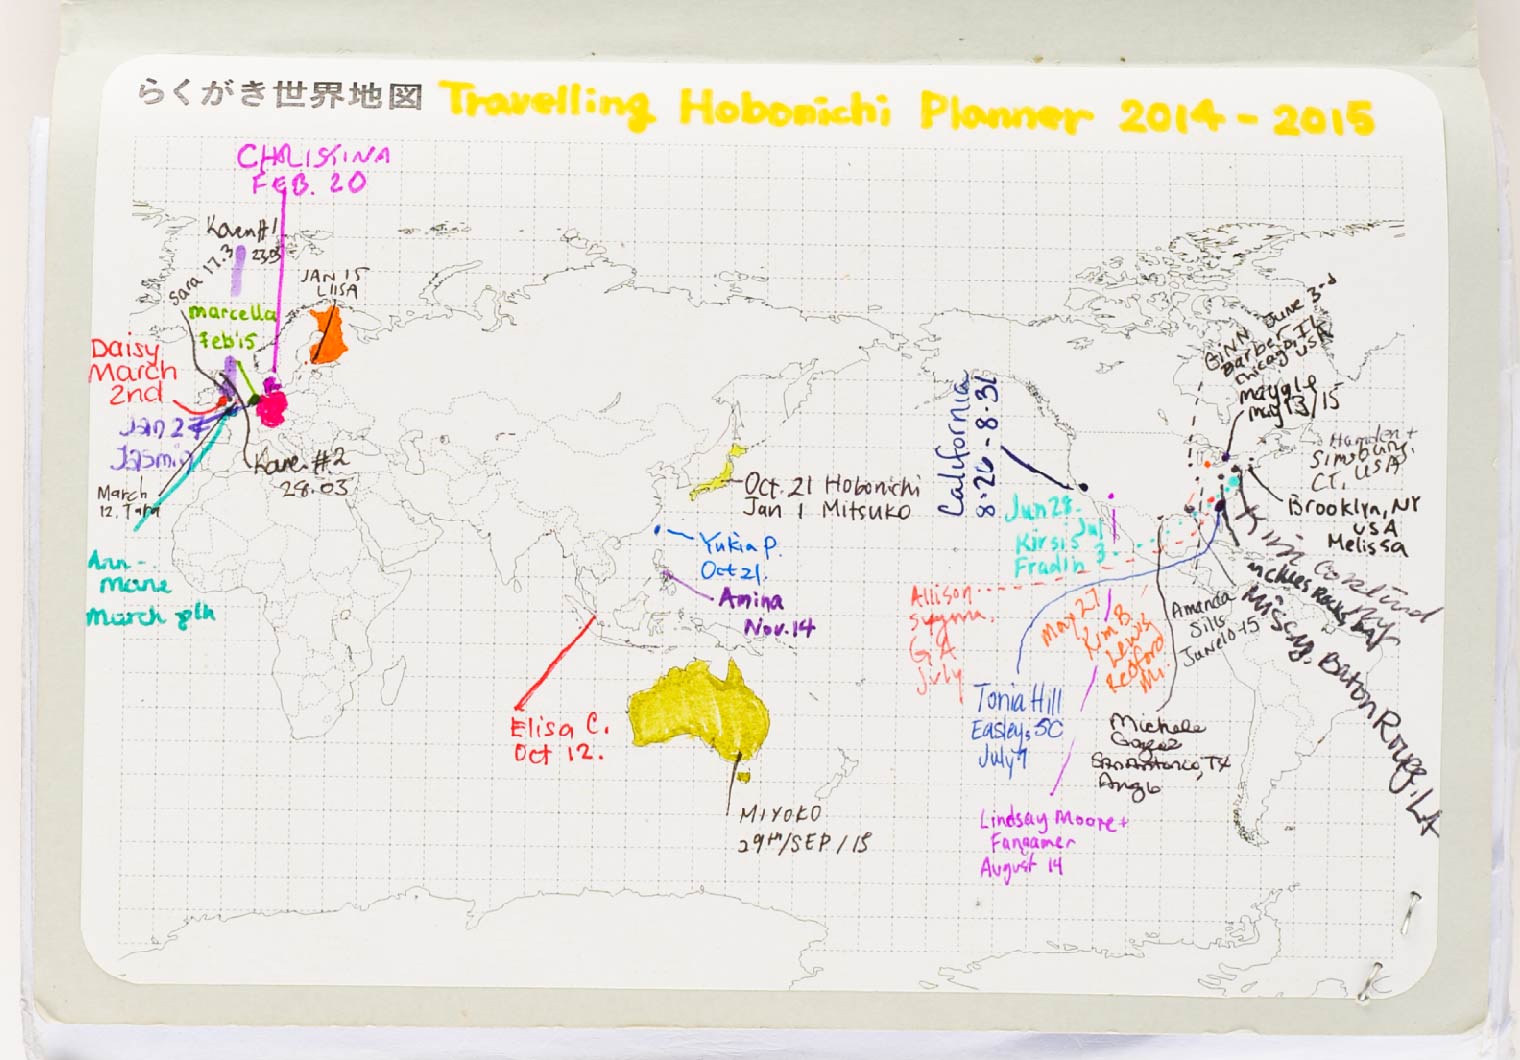 らくがき世界地図 Travelling Hobonichi Planner 2014-2015
CHRISTINA
FEB. 20
Karen #1
23.03
Sara 17.3
JAN 15
LIISA
marcella
Feb 15
Daisy
March
2nd
Jan 27
Jasmin
Karen #2
28.03
March
12, Tara
Ann-
Marie
March 8th
Oct. 21 Hobonichi
Jan 1 Mitsuko
Yukia P.
Oct 21.
Amina
Nov. 14
Elisa C.
Oct 12.
MIYOKO
29th/SEP/15
California
8.26-8.31
Jun 28.
Jul
Kirsi's
Fradin 3
Allison
GA
July
May 27
Kim B.
Lewis
Redford
Mi.
Tonia Hill
Easley, SC
July 7
Lindsay Moore +
Fangamer
August 14
Michele
San Antonio, TX
Amanda
Sills
June 10-15
GiNN June 3rd
Barber
Chicago, IL
USA
May 13/15
Hamden +
Simsbury,
CT, USA
Brooklyn, NY
USA
Melissa
Kim
McKees Rocks, PA
Missy, Baton Rouge, LA